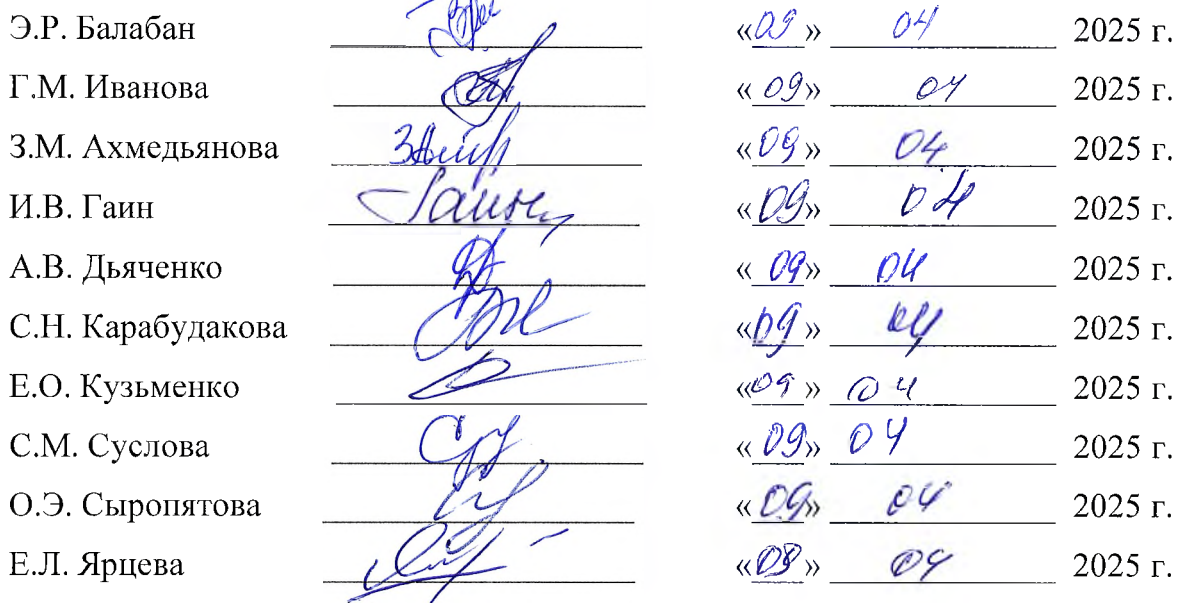 Э.Р. Балабан «09» 04 2025 г.
Г.М. Иванова «09» 04 2025 г.
З.М. Ахмедьянова «09» 04 2025 г.
И.В. Гаин «09» 04 2025 г.
А.В. Дьяченко «09» 04 2025 г.
С.Н. Карабудакова «09» 04 2025 г.
Е.О. Кузьменко «09» 04 2025 г.
С.М. Суслова «09» 04 2025 г.
О.Э. Сыропятова «09» 04 2025 г.
Е.Л. Ярцева « » 04 2025 г.